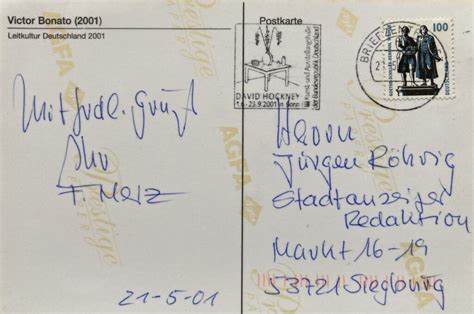 Victor Bonato (2001)
Leitkultur Deutschland 2001
Postkarte
DAVID HOCKNEY
1.6.-23.9.2001 in Bonn
Kunst- und Ausstellungshalle
der Bundesrepublik Deutschland
BRIEFZEN
100
Mit frdl. Gruß
Ihr
F. Merz
21-5-01
Herrn
Jürgen Röhrig
Stadtanzeiger
Redaktion
Markt 16-19
53721 Siegburg
Prestige
AGFA
Prestige
AGFA
AGFA